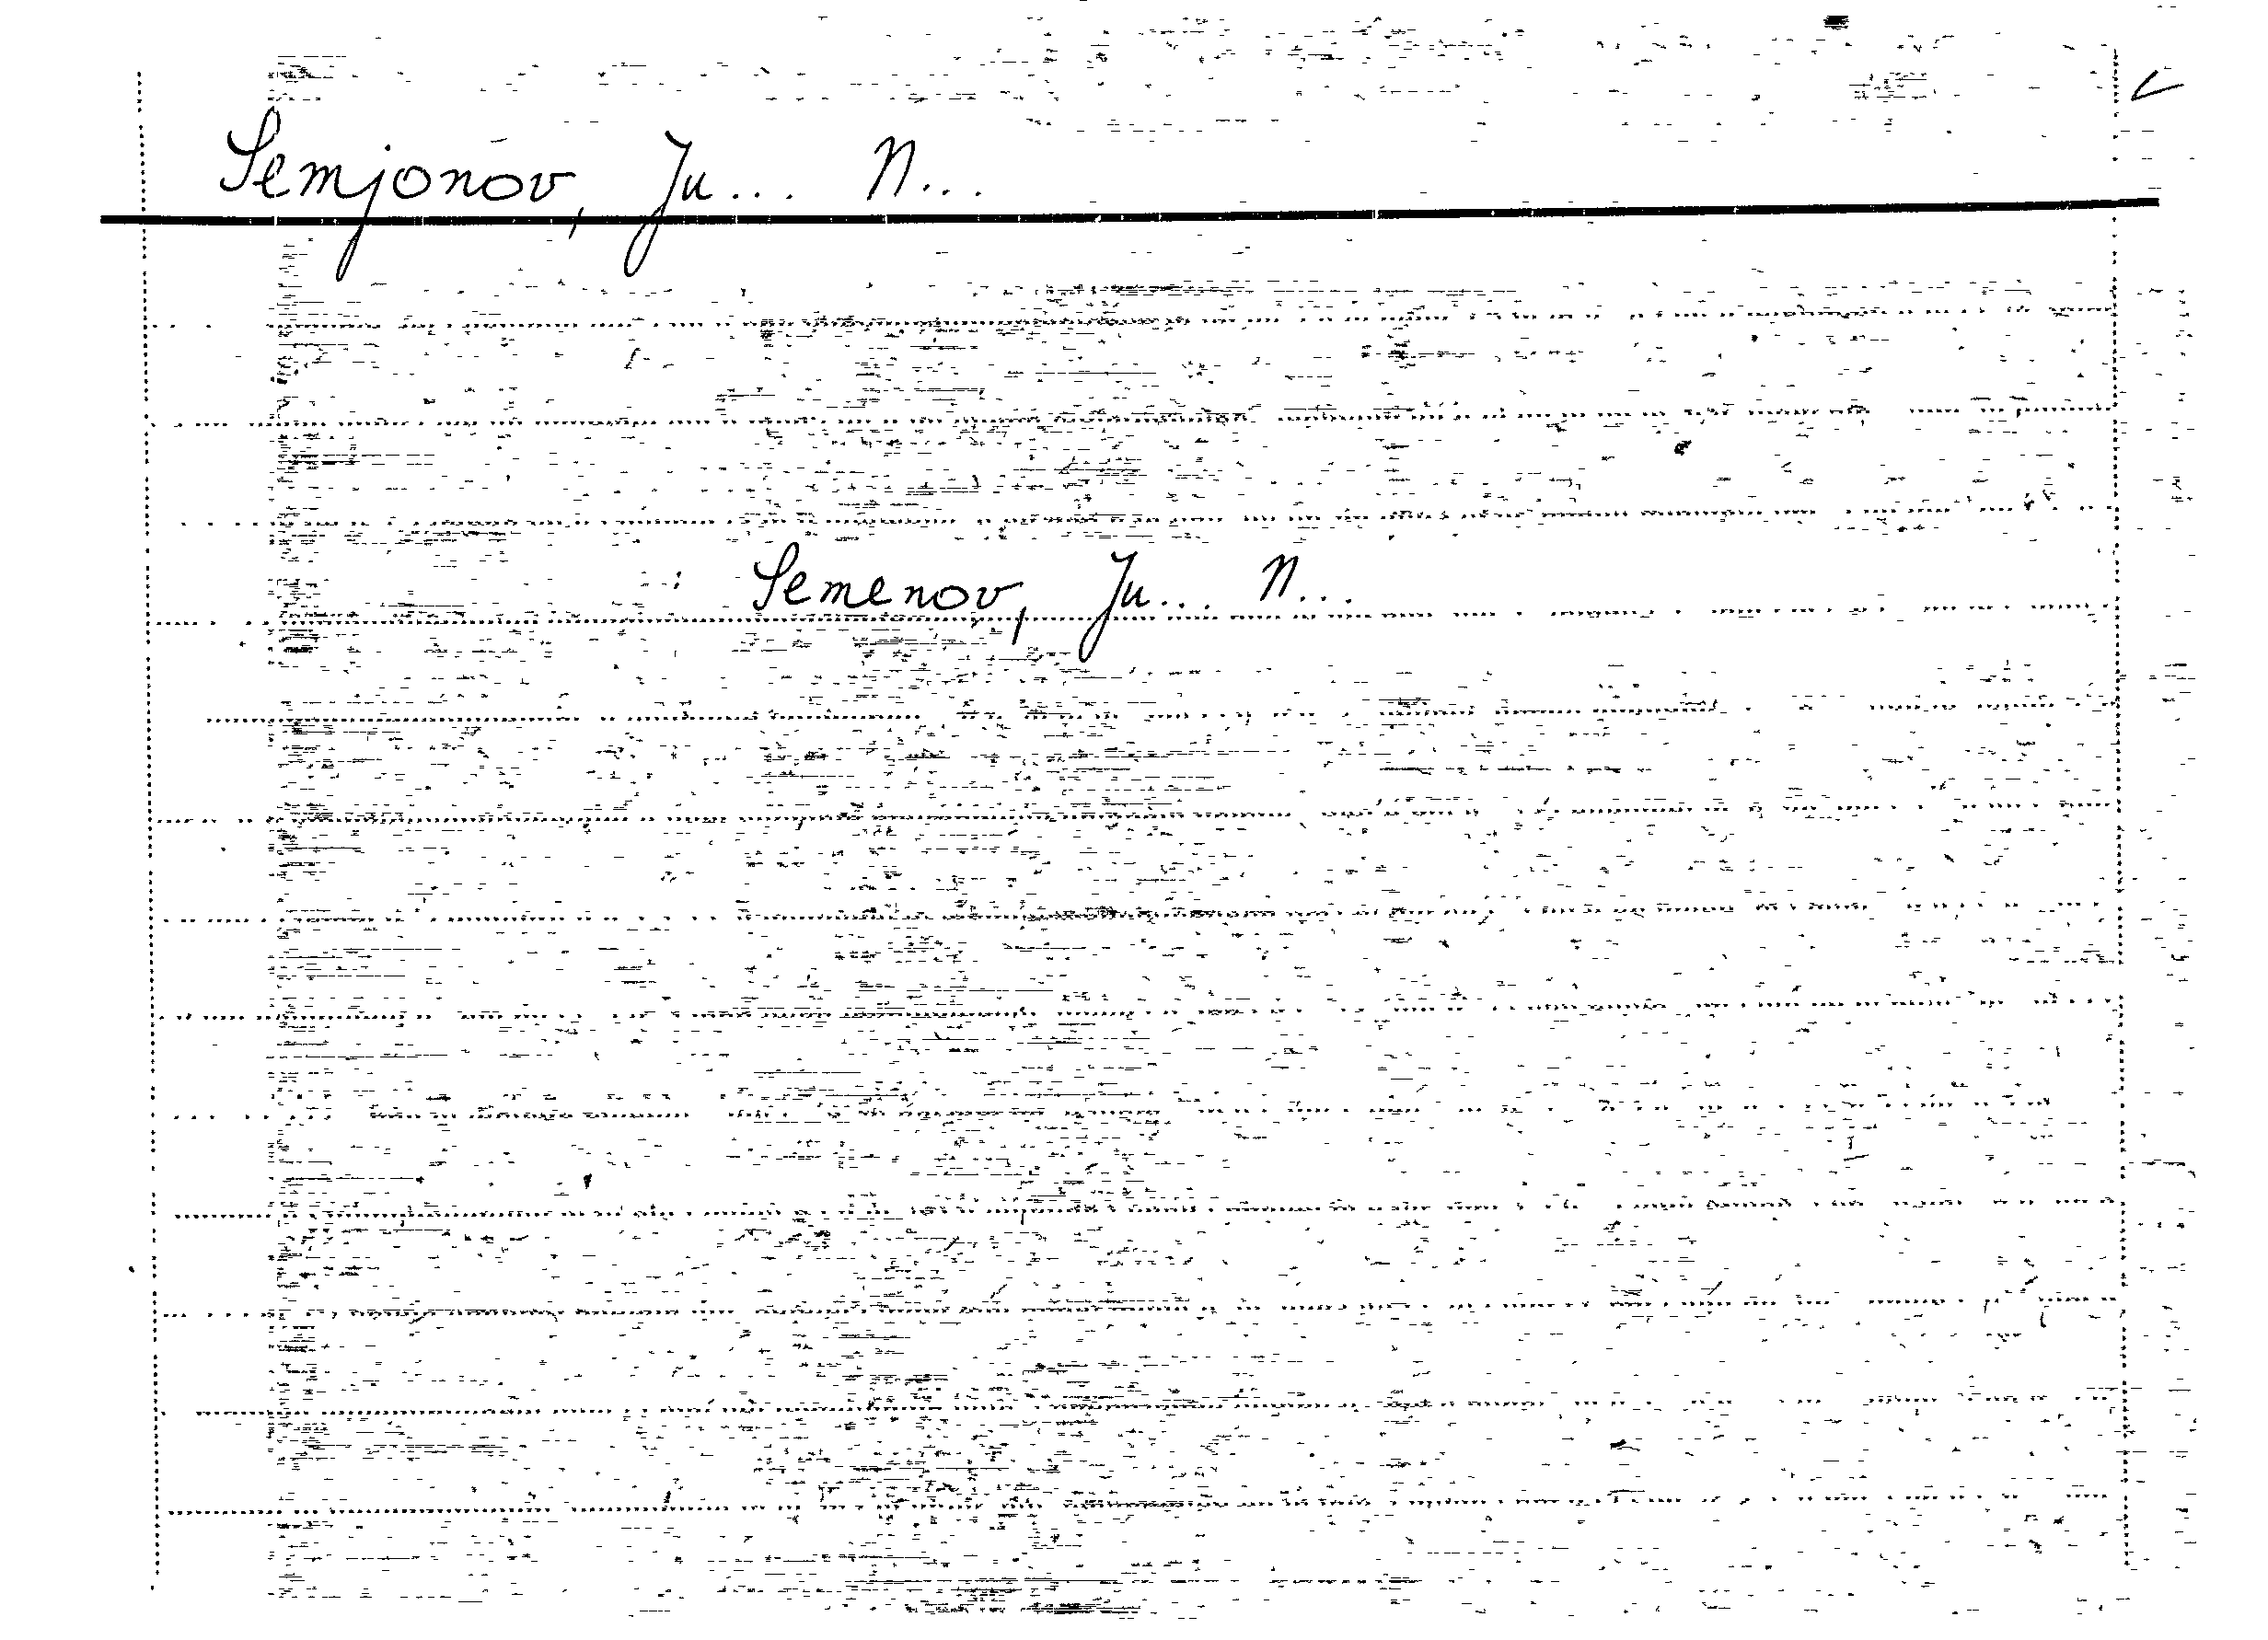 Semjonov, Ju... N...
: Semenov, Ju... N...